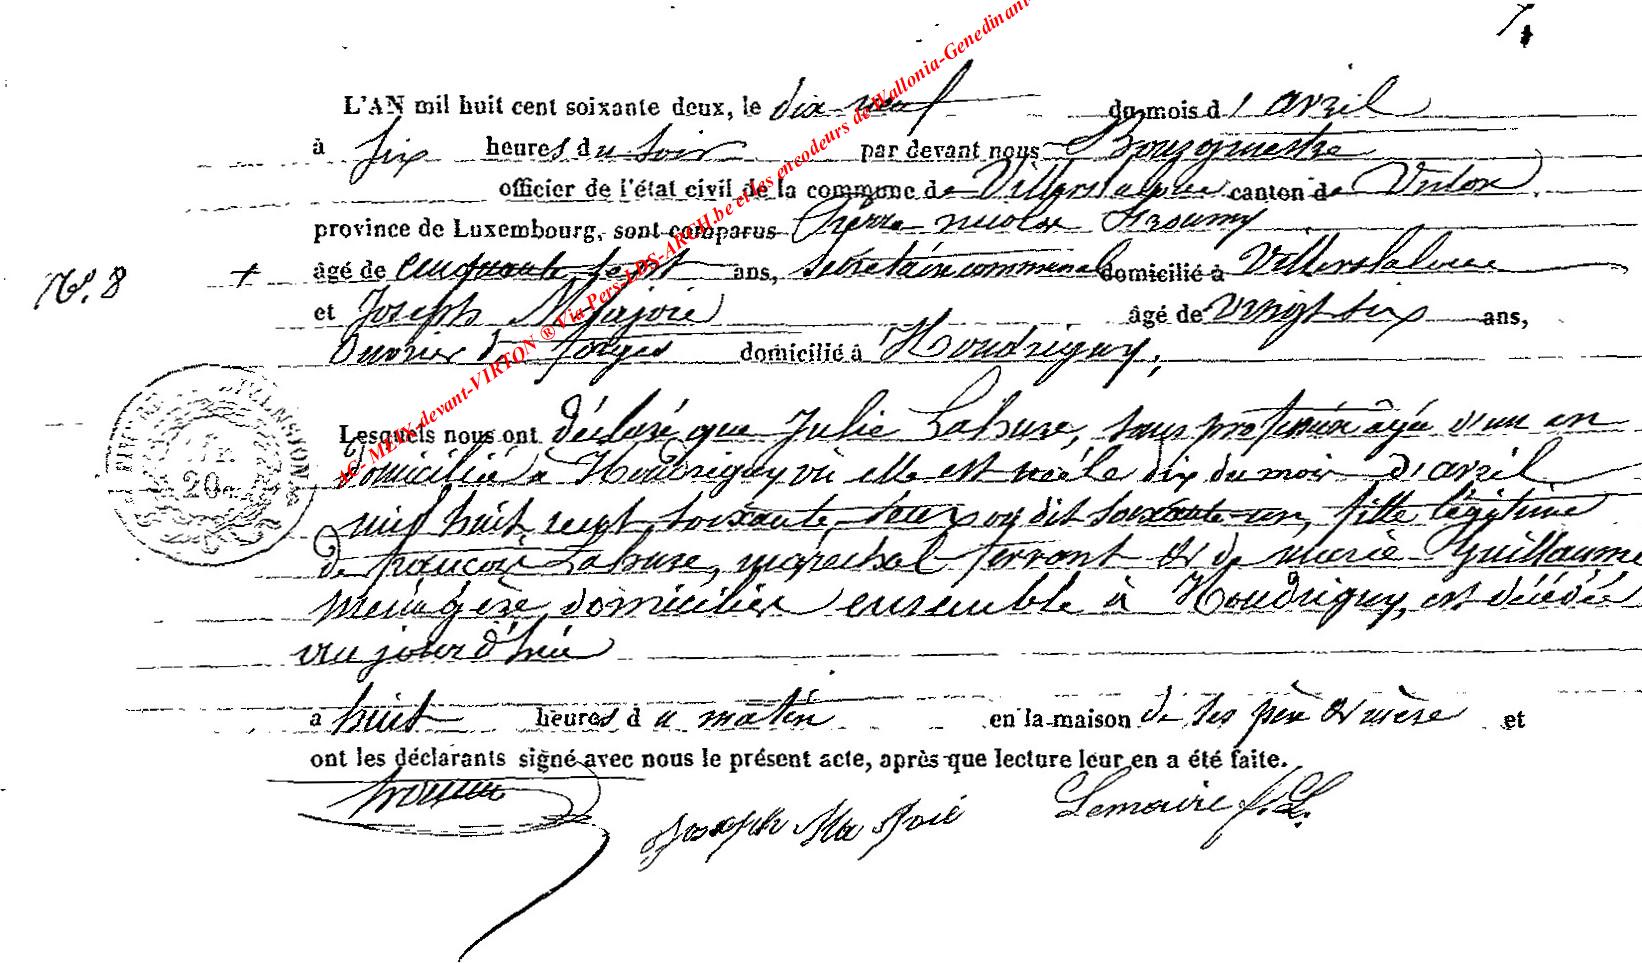 7.
L'AN mil huit cent soixante deux, le dix neuf du mois d'avril
à six heures du soir par devant nous Bourgmestre
officier de l'état civil de la commune de Villerslaloue canton de Virton
province de Luxembourg, sont comparus Pierre nicolas
N°. 8 + âgé de cinquante sept ans, secrétaire communal domicilié à Villerslaloue
et Joseph Majoie âgé de vingt six ans,
Ouvrier de forges domicilié à Houdrigny,
Lesquels nous ont déclaré que Julie Lahure, sans profession âgée d'un an
domicilié à Houdrigny où elle est née le dix du mois d'avril
mil huit cent soixante deux on dit soixante un, fille légitime
de françois Lahure, maréchal ferrant & de marie Guillaume
menagère, domiciliés ensemble à Houdrigny, est décédée
au jour d'hui
à huit heures du matin en la maison de ses père & mère et
ont les déclarants signé avec nous le présent acte, après que lecture leur en a été faite.
Joseph Ma Joie Lemaire
TIMBRE EXTENSION
20
AC- MEIX-devant-VIRTON ® Via Pers-LDS-ARCH.be et les encodeurs de Wallonia-Genedinant